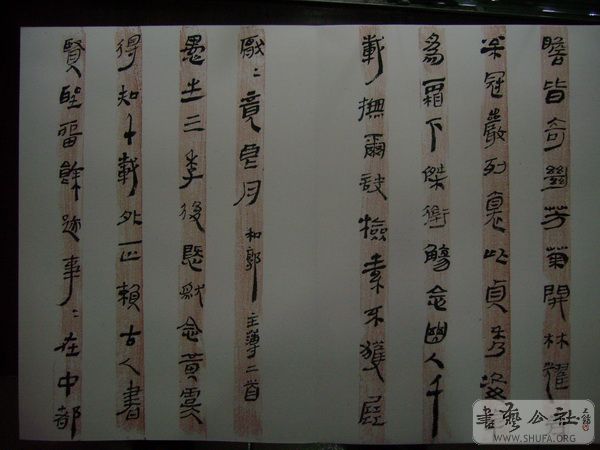 瞻皆奇絕芳菊開林耀青
松冠巖列懷此貞秀姿
為霜下傑銜觴念幽人千
載撫爾訣檢素不獲展
厭〻竟良月 和郭主簿二首
愚生三季後慨然念黃虞
得知千載外正賴古人書
賢聖留餘跡事〻在中都
書藝公社
WWW.SHUFA.ORG